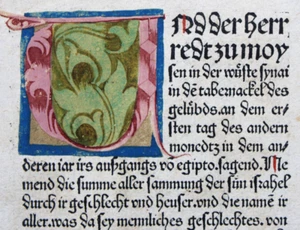 UNd der herr
redt zu moy
sen in der wüste synai
in dē tabernackel des
gelübds. an dem er-
sten tag des andern
monedtz in dem an-
deren iar irs aufzgangs vo egipto. sagend. Ne
mend die summe aller sammung der sün israhel
durch ir geschlecht vnd heuser. vnd die namē ir
aller. was da sey mennliches geschlechtes. von